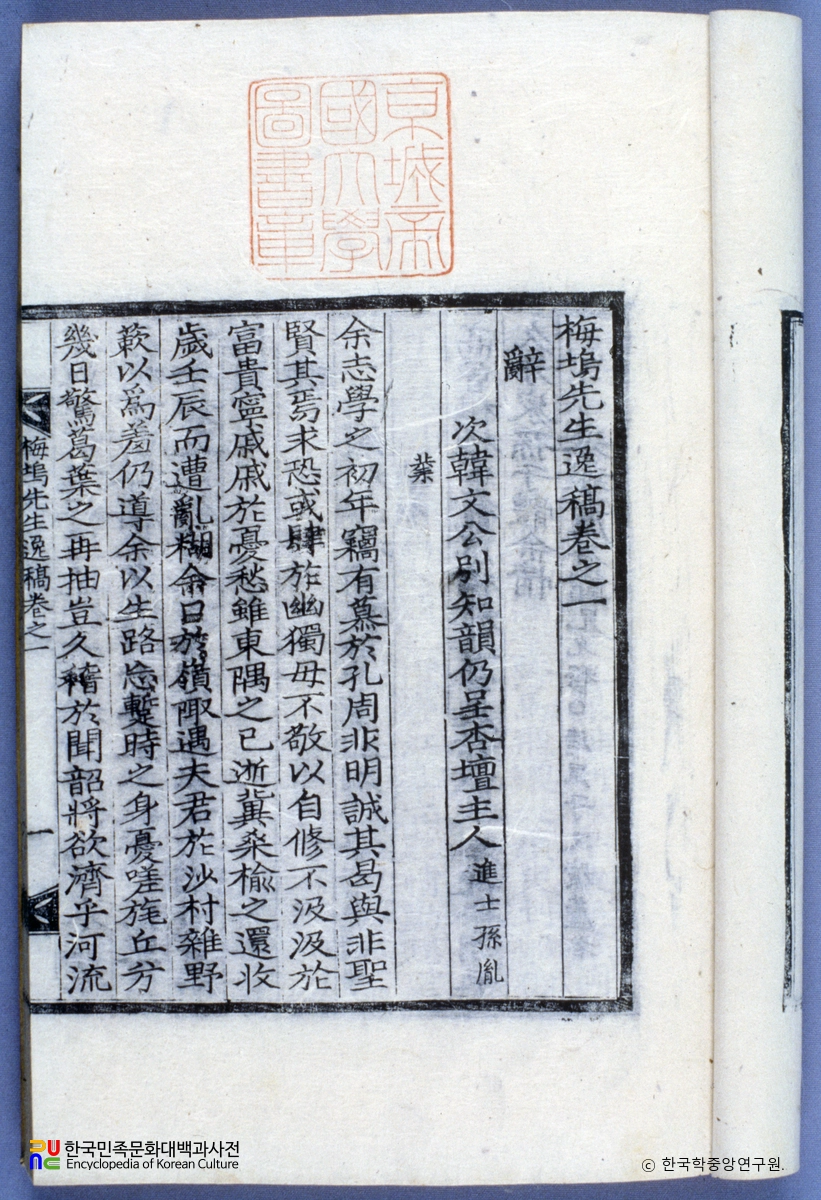 京城帝
國大學
圖書章
梅塢先生逸稿卷之一
辭
次韓文公別知韻仍呈杏壇主人進士孫胤
業
余志學之初年竊有慕於孔周非明誠其曷與非聖
賢其焉求恐或肆於幽獨毋不敬以自修不汲汲於
富貴寧戚戚於憂愁雖東隅之已逝冀桑楡之還收
歲壬辰而遭亂糊余口於嶺陬遇夫君於沙村雜野
蔌以爲羞仍導余以生路念蹔時之身憂嗟旄丘兮
幾日驚葛葉之再抽豈久稽於聞韶將欲濟乎河流
梅塢先生逸稿卷之一
一
한국민족문화대백과사전
Encyclopedia of Korean Culture
ⓒ 한국학중앙연구원.